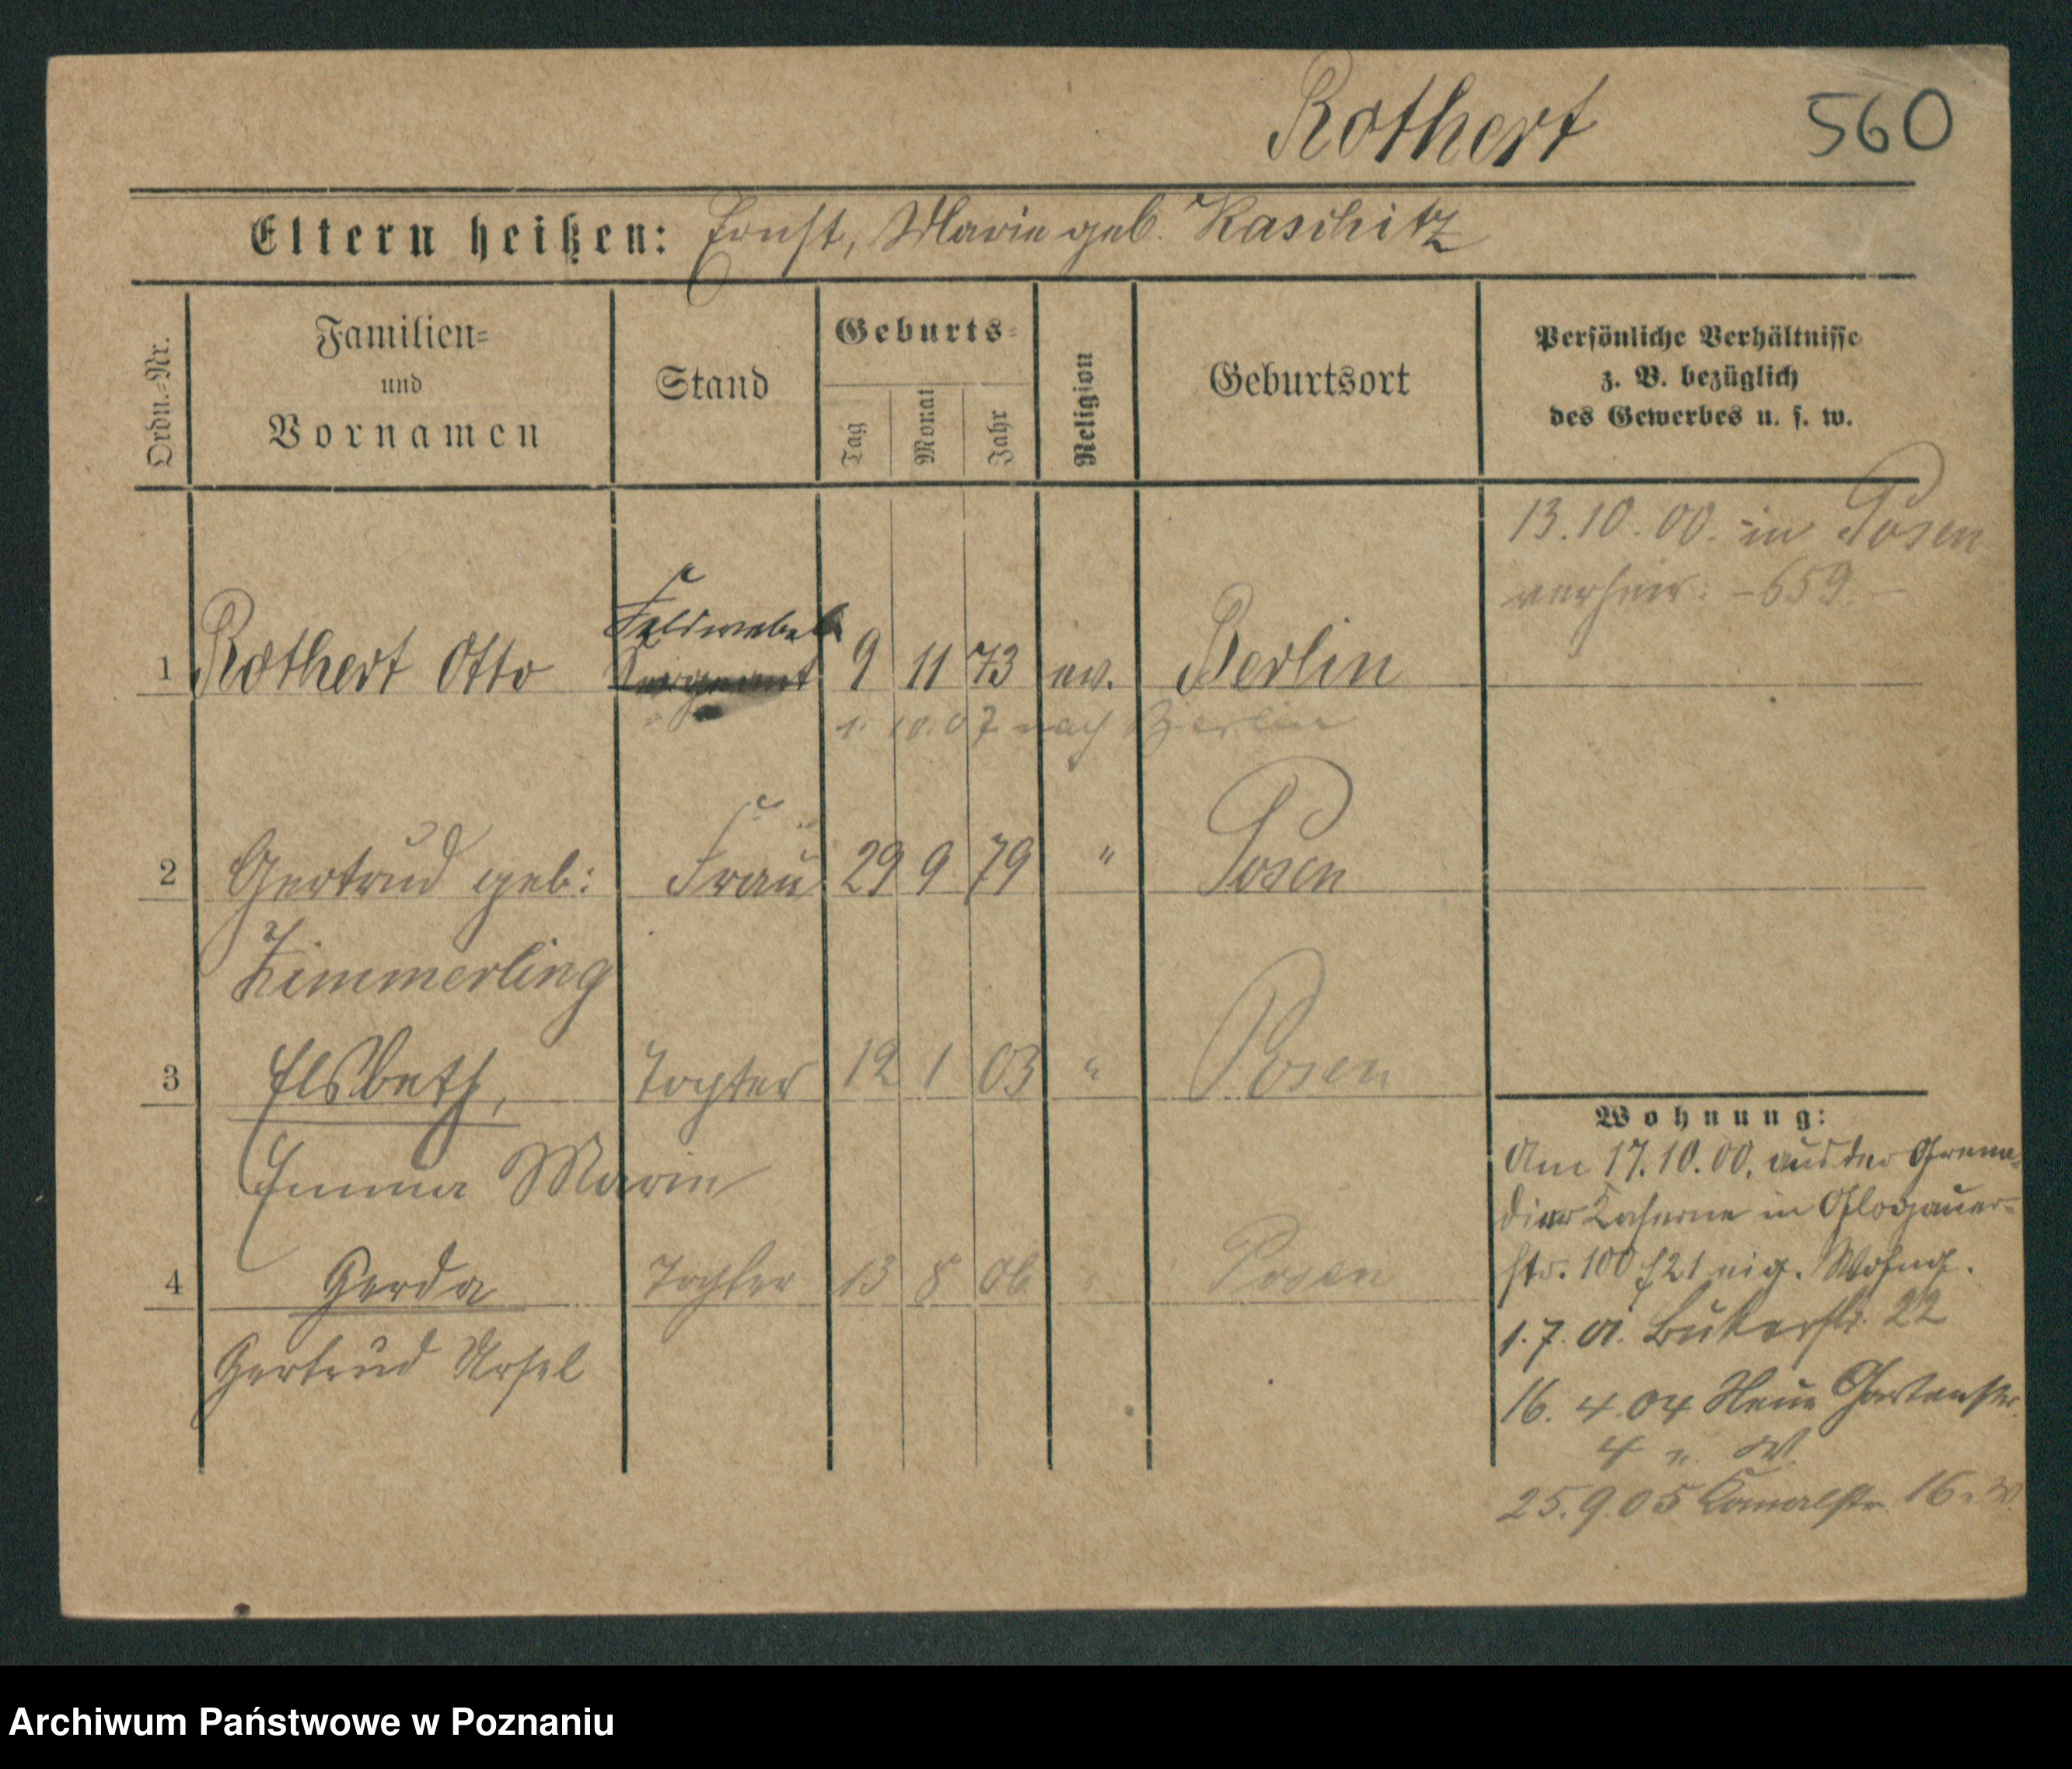 Rothert 560
Eltern heißen: Ernst, Marie geb. Kaschitz
Ordn.=Nr. Familien= und Vornamen Stand Geburts= Tag Monat Jahr Religion Geburtsort Persönliche Verhältnisse z. B. bezüglich des Gewerbes u. s. w.
13.10.00. in Posen
verheir: -659.-
Feldwebel
1 Rothert Otto Sergeant 9 11 73 ev. Berlin
1. 10. 07 nach Berlin
2 Gertrud geb: Frau 29 9 79 " Posen
Zimmerling
3 Elsbeth, Tochter 12 1 03 " Posen
Emma Marie
4 Gerda Tochter 13 8 06 " Posen
Gertrud Ursel
Wohnung:
Am 17.10.00. aus der Grena-
dier Kaserne in Glogauer-
str. 100 f21 eig. Wohng.
1.7.01. Bukerstr. 22
16. 4.04 Neue Gartenstr.
4 n. W.
25.9.05 Kanalstr. 16 n. W.
Archiwum Państwowe w Poznaniu